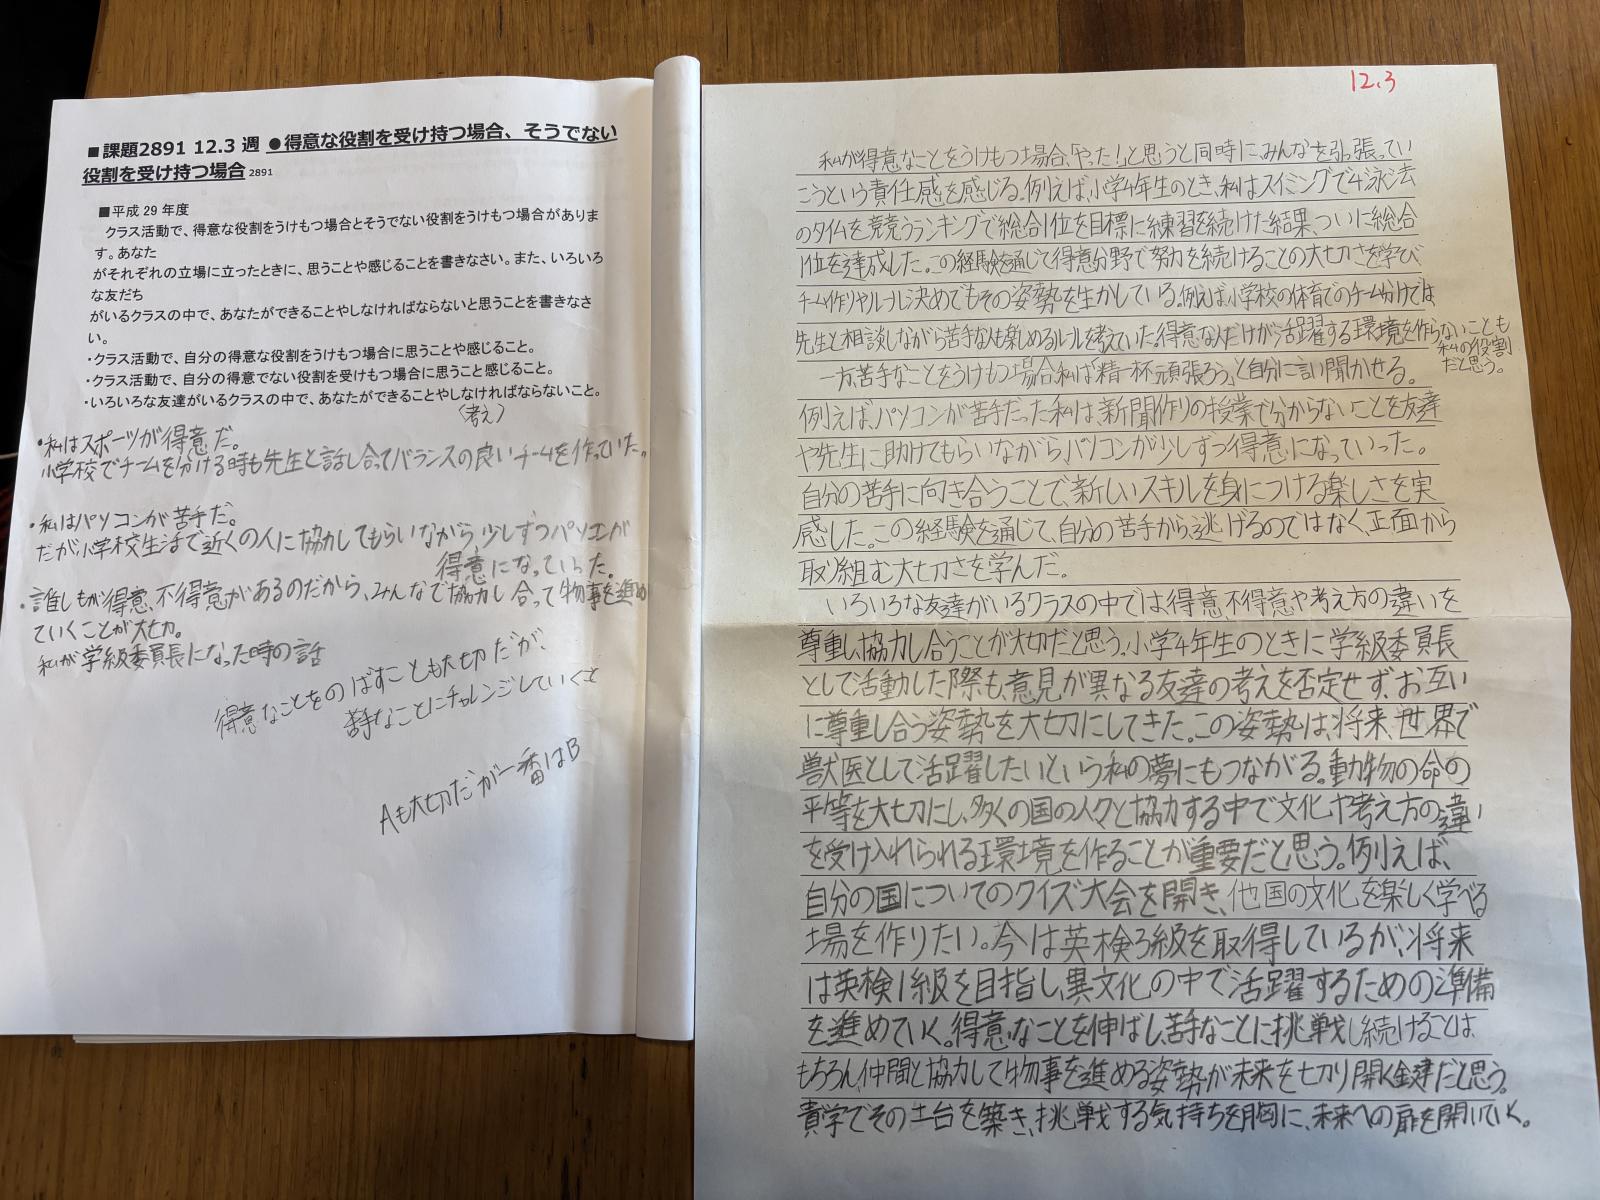 ■課題2891 12.3 週 ●得意な役割を受け持つ場合、そうでない
役割を受け持つ場合 2891
■平成 29 年度
クラス活動で、得意な役割をうけもつ場合とそうでない役割をうけもつ場合がありま
す。あなた
がそれぞれの立場に立ったときに、思うことや感じることを書きなさい。また、いろいろ
な友だち
がいるクラスの中で、あなたができることやしなければならないと思うことを書きなさ
い。
・クラス活動で、自分の得意な役割をうけもつ場合に思うことや感じること。
・クラス活動で、自分の得意でない役割を受けもつ場合に思うこと感じること。
・いろいろな友達がいるクラスの中で、あなたができることやしなければならないこと。
(考え)
・私はスポーツが得意だ。
小学校でチームを分ける時も先生と話し合ってバランスの良いチームを作っていた。
・私はパソコンが苦手だ。
だが小学校生活で近くの人に協力してもらいながら、少しずつパソコンが
得意になっていった。
・誰しもが得意、不得意があるのだから、みんなで協力し合って物事を進め
ていくことが大切。
私が学級委員長になった時の話
得意なことをのばすことも大切だが、
苦手なことにチャレンジしていくこと
Aも大切だが一番はB
12.3
私が得意なことをうけもつ場合、「やった!」と思うと同時に、みんなを引っ張ってい
こうという責任感を感じる。例えば、小学4年生のとき、私はスイミングで4泳法
のタイムを競うランキングで総合1位を目標に練習を続けた結果、ついに総合
1位を達成した。この経験を通じて得意分野で努力を続けることの大切さを学び、
チーム作りやルール決めでもその姿勢を生かしている。例えば小学校の体育でのチーム分けでは
先生と相談しながら苦手な人も楽しめるルールを考えていた。得意な人だけが活躍する環境を作らないことも
私の役割
だと思う。
一方、苦手なことをうけもつ場合、私は「精一杯頑張ろう」と自分に言い聞かせる。
例えば、パソコンが苦手だった私は、新聞作りの授業で分からないことを友達
や先生に助けてもらいながら、パソコンが少しずつ得意になっていった。
自分の苦手に向き合うことで、新しいスキルを身につける楽しさを実
感した。この経験を通じて、自分の苦手から逃げるのではなく、正面から
取り組む大切さを学んだ。
いろいろな友達がいるクラスの中では、得意、不得意や考え方の違いを
尊重し、協力し合うことが大切だと思う。小学4年生のときに学級委員長
として活動した際も、意見が異なる友達の考えを否定せず、お互い
に尊重し合う姿勢を大切にしてきた。この姿勢は、将来、世界で
獣医として活躍したいという私の夢にもつながる。動物の命の
平等を大切にし、多くの国の人々と協力する中で文化や考え方の違い
を受け入れられる環境を作ることが重要だと思う。例えば、
自分の国についてのクイズ大会を開き、他国の文化を楽しく学べる
場を作りたい。今は英検3級を取得しているが、将来
は英検1級を目指し、異文化の中で活躍するための準備
を進めていく。得意なことを伸ばし、苦手なことに挑戦し続けることは、
もちろん、仲間と協力して物事を進める姿勢が未来を切り開く鍵だと思う。
貴学でその土台を築き、挑戦する気持ちを胸に、未来への扉を開いていく。